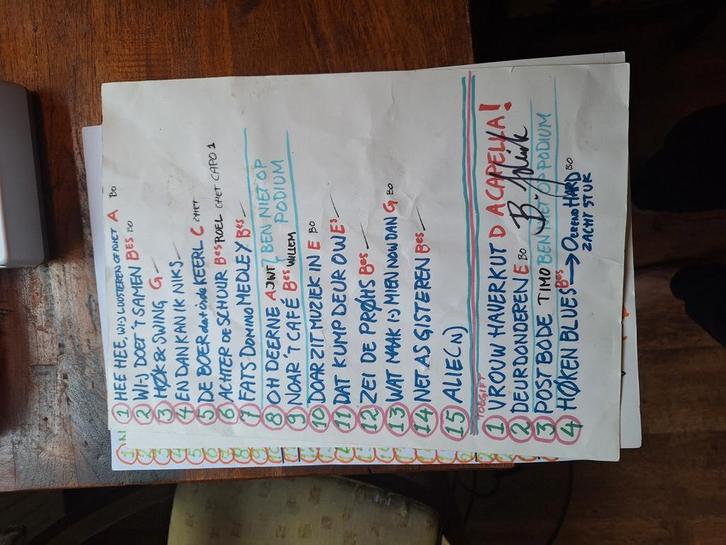 1 HEE HEE, WIJ LUUSTEREN OF NIET A BO
2 WIJ DOET 'T SAMEN BES BO
3 HØK & SWING G
4 EN DAN KAN IK NIKS
5 DE BOER dat is de KEERL C CHET
6 ACHTER DE SCHUUR Bes ROEL CHET CAPO 1
7 FATS DOMINO MEDLEY Bes
8 OH DEERNE A JWT ? BEN NIET OP
9 NOAR 'T CAFÉ Bes WILLEM PODIUM
10 DOAR ZIT MUZIEK IN E BO
11 DAT KUMP DEUR OW Es
12 ZEI DE PRØMS Bes
13 WAT MAAK IJ MIEN NOW DAN G BO
14 NET AS GISTEREN Bes
15 ALIE(N)
TOEGIFT
1 VROUW HAVERKUT D ACAPELLA!
2 DEURDONDEREN E BO
3 POSTBODE TIMO BEN NIET OP PODIUM
4 HØKEN BLUES Bes → OEREND HARD BO
ZACHT STUK